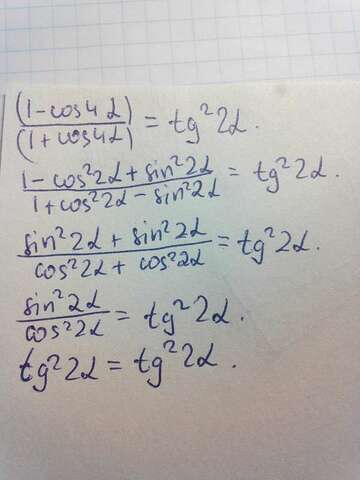 (1-cos4α)/(1+cos4α) = tg²2α.
1-cos²2α+sin²2α/1+cos²2α-sin²2α = tg²2α.
sin²2α+sin²2α/cos²2α+cos²2α = tg²2α.
sin²2α/cos²2α = tg²2α.
tg²2α = tg²2α.